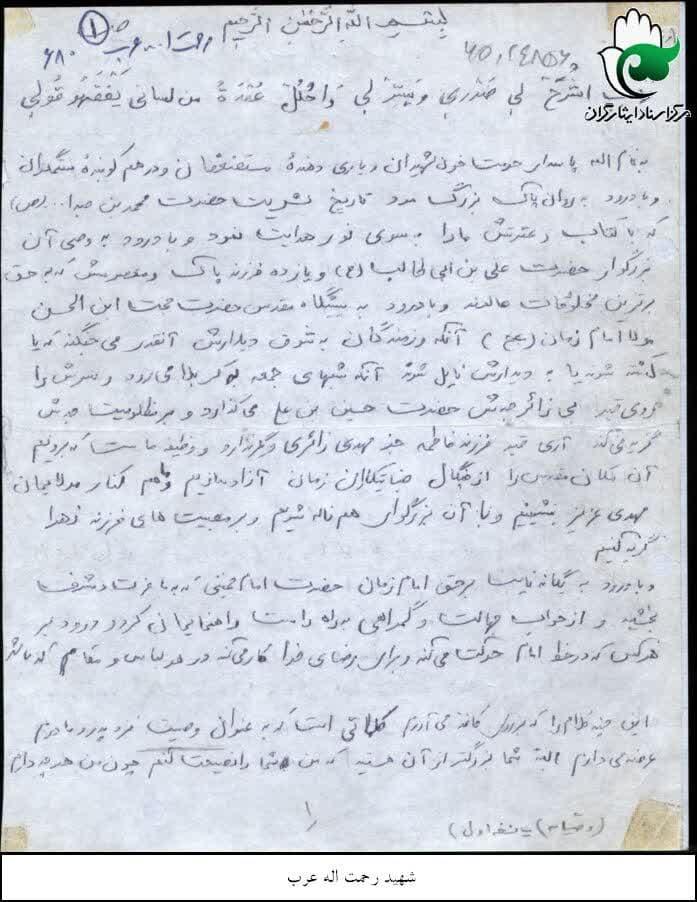 بِسْمِ اللَّهِ الرَّحْمٰنِ الرَّحیمِ
۱
رحمت ا... عرب
۶۸۰
۶۵۰۲۴۸۵۶
مرکز اسناد ایثارگران
اشْرَحْ لی صَدْری وَ یَسِّرْ لی وَاحْلُلْ عُقْدَةً من لسانی یَفْقَهُوا قُولی
به نام الله پاسدار حرمت خون شهیدان و یاری دهندهٔ مستضعفان و درهم کوبندهٔ ستمگران
و با درود به روان پاک بزرگ مرد تاریخ بشریت حضرت محمد بن عبدا... (ص)
که با کتاب و عترتش ما را به سوی نور هدایت نمود و با درود به وصی آن
بزرگوار حضرت علی بن ابی طالب (ع) و یازده فرزند پاک و معصومش که به حق
برترین مخلوقات عالمند و با درود به پیشگاه مقدس حضرت حجت ابن الحسن
مولا امام زمان (عج) آنکه رزمندگان به شوق دیدارش آنقدر می جنگند که یا
کشته شوند یا به دیدارش نایل شوند آنکه شبهای جمعه به کربلا می رود و سرش را
روی قبر بی زائر جدش حضرت حسین بن علی می گذارد و بر مظلومیت جدش
گریه می کند آری قبر فرزند فاطمه جز مهدی زائری دیگر ندارد و وظیفه ماست که برویم
آن مکان مقدس را از چنگال جنایتکاران زمان آزاد سازیم و ما هم کنار مولایمان
مهدی عزیز بنشینیم و با آن بزرگوار هم ناله شویم و بر مصیبت های فرزند زهرا
گریه کنیم
و با درود به یگانه نایب بر حق امام زمان حضرت امام خمینی که به ما عزت و شرف
بخشید و از خواب جهالت و گمراهی به راه راست راهنمایمان کرد و درود بر
هر کس که در خط امام حرکت می کند و برای رضای خدا کار می کند در هر لباس و مقامی که باشد
این چند کلام را که بر روی کاغذ می آورم کلماتی است که به عنوان وصیت نزد پدر و مادرم
عرضه می دارم البته شما بزرگتر از آن هستید که من شما را نصیحت کنم چون من هر چه دارم
۱
(وصیتنامه)
شهید رحمت اله عرب